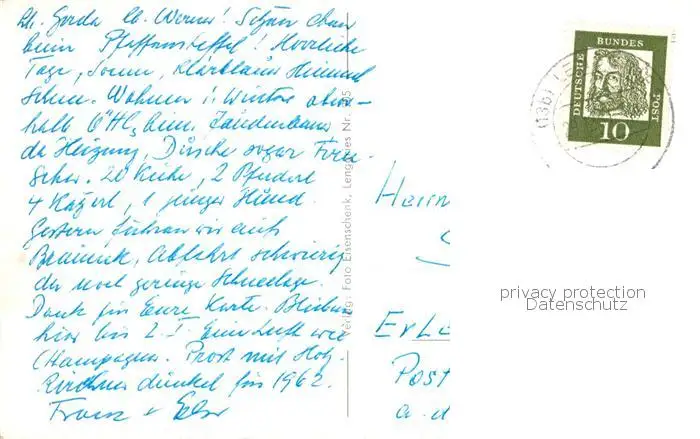 Lb. Gerda lb. Werner! Sitzen oben
beim Pfaffensteffel! Herrliche
Tage, Sonne, klarblauer Himmel
Schnee. Wohnen i. Winter ober-
halb
da Heizung, Dusche sogar Fern-
seher. 20 Kühe, 2 Pferderl
4 Katzerl, 1 junger Hund.
Gestern fuhren wir aufs
Brauneck, Abfahrt schwierig
da noch geringe Schneelage.
Dank für Eure Karte. Bleiben
hier bis 2.I. Eine Luft wie
Champagner. Prost mit Holz-
kirchner dunkel für 1962.
Franz +
Verlag: Foto Eisenschenk, Lenggries Nr.
DEUTSCHE
BUNDES
POST
10
(13b)
Herrn
Erla
Post
a. d
privacy protection
Datenschutz